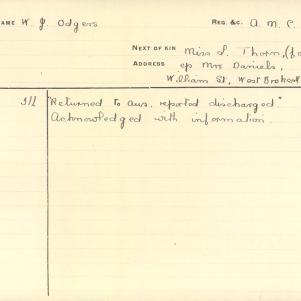 NAME W. J. Odgers
REG. &C. A. M. C.
NEXT OF KIN Miss L. Thorn, (
ADDRESS c/o Mrs Daniels,
William St, West Broken
"Returned to Aus. reported discharged."
Acknowledged with information.